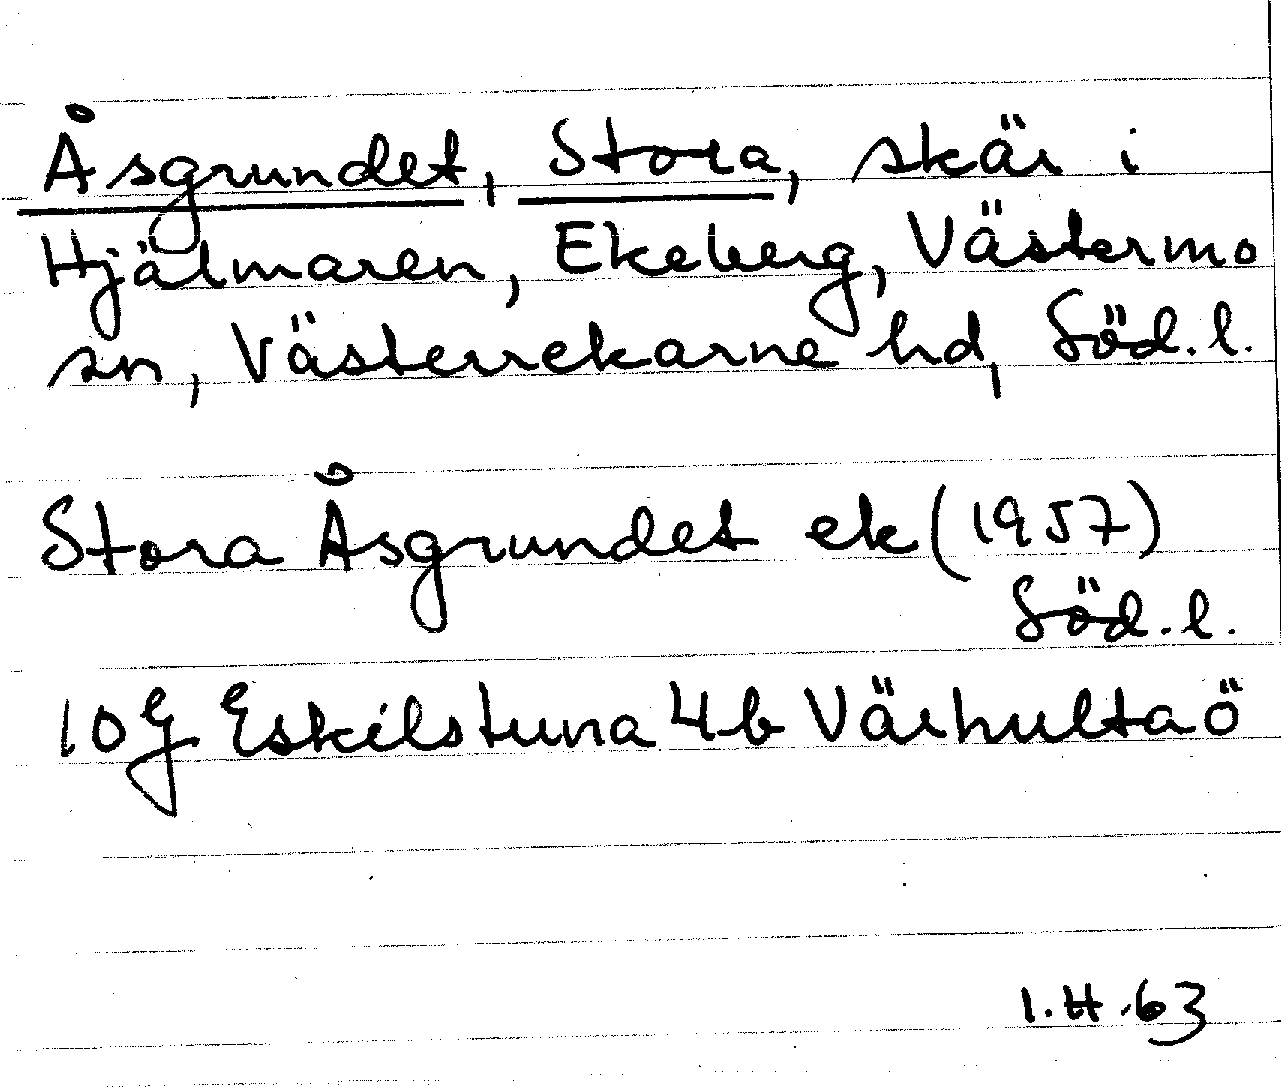 Åsgrundet, Stora, skär i
Hjälmaren, Ekeberg, Västermo
sn, Västerrekarne hd, Söd.l.
Stora Åsgrundet ek (1957)
Söd.l.
10G Eskilstuna 4b Värhultaö
I.H.63